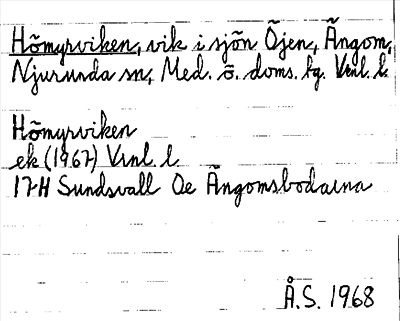 Hömyrviken, vik i sjön Öjen, Ängom,
Njurunda sn, Med. ö. doms. tg. Vnl. l.
Hömyrviken
ek (1967) Vnl. l.
17H Sundsvall Oe Ängomsbodarna
Å.S. 1968